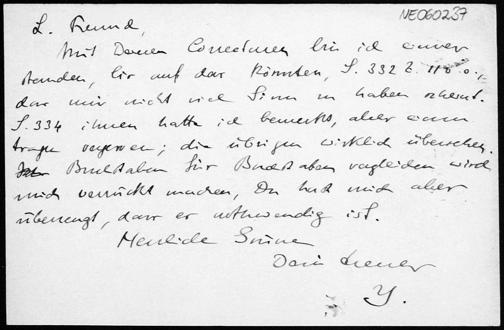 NE060237
L. Freund,
Mit Deinen Correcturen bin ich einver
standen, bis auf das könnten, S. 332 Z. 11
das mir nicht viel Sinn zu haben scheint.
S. 334 ihnen hatte ich bemerkt, aber einzu
tragen vergessen; die übrigen wirklich übersehen.
Buchstaben für Buchstaben vergleichen wird
mich verrückt machen, Du hast mich aber
überzeugt, dass es nothwendig ist.
Herzliche Grüsse
Dein
Y.